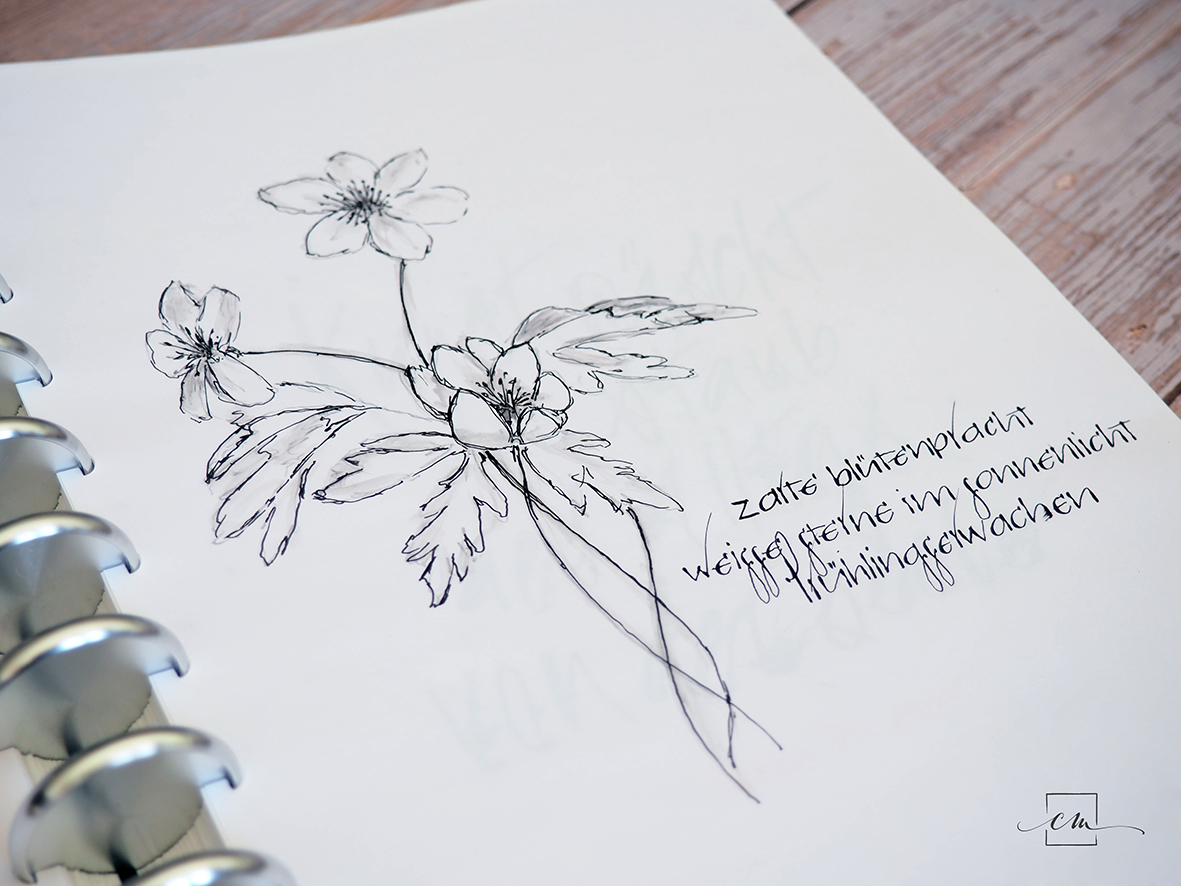 zarte blütenpracht
weisse sterne im sonnenlicht
frühlingserwachen
cm